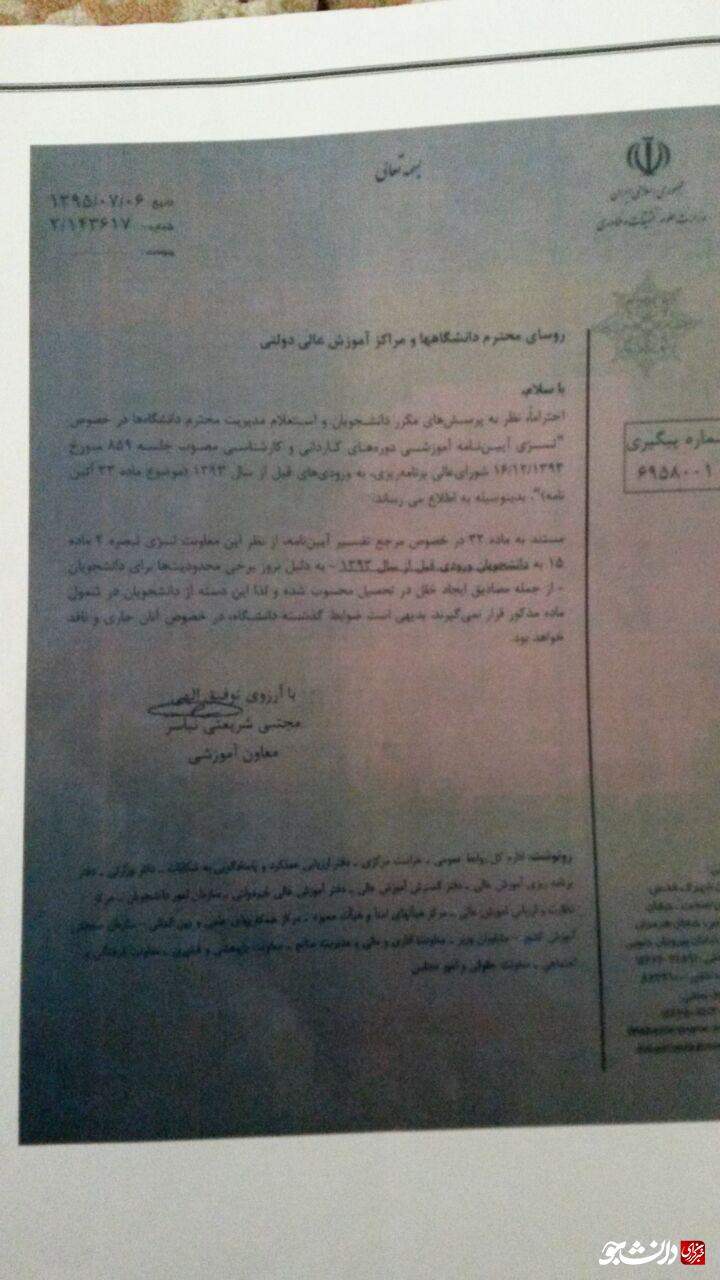 بسمه تعالی
جمهوری اسلامی ایران
وزارت علوم، تحقیقات و فناوری
تاریخ ۱۳۹۵/۰۷/۰۶
شماره ۲/۱۴۳۶۱۷
پیوست
شماره پیگیری
۶۹۵۸۰۰۱
روسای محترم دانشگاهها و مراکز آموزش عالی دولتی
با سلام،
احتراماً، نظر به پرسش‌های مکرر دانشجویان و استعلام مدیریت محترم دانشگاه‌ها در خصوص
"تسری آیین‌نامه آموزشی دوره‌های کاردانی و کارشناسی مصوب جلسه ۸۵۹ مورخ
۱۶/۱۲/۱۳۹۳ شورای‌عالی برنامه‌ریزی، به ورودی‌های قبل از سال ۱۳۹۳ (موضوع ماده ۲۳ آئین
نامه)"، بدینوسیله به اطلاع می رساند:
مستند به ماده ۲۲ در خصوص مرجع تفسیر آیین‌نامه، از نظر این معاونت تسری تبصره ۲ ماده
۱۵ به دانشجویان ورودی قبل از سال ۱۳۹۳ - به دلیل بروز برخی محدودیت‌ها برای دانشجویان
- از جمله مصادیق ایجاد خلل در تحصیل محسوب شده و لذا این دسته از دانشجویان در شمول
ماده مذکور قرار نمی‌گیرند. بدیهی است ضوابط گذشته دانشگاه، در خصوص آنان جاری و نافذ
خواهد بود.
با آرزوی توفیق الهی
مجتبی شریعتی نیاسر
معاون آموزشی
رونوشت: اداره کل روابط عمومی - حراست مرکزی - دفتر ارزیابی عملکرد و پاسخگویی به شکایات - دفتر وزارتی - دفتر
برنامه ریزی آموزش عالی - دفتر گسترش آموزش عالی - دفتر آموزش عالی غیردولتی - سازمان امور دانشجویان - مرکز
نظارت و ارزیابی آموزش عالی - مرکز هیأتهای امنا و هیأت ممیزه - مرکز همکاریهای علمی و بین المللی - سازمان سنجش
آموزش کشور - مشاوران وزیر - معاونت اداری و مالی و مدیریت منابع - معاونت پژوهشی و فناوری - معاونت فرهنگی و
اجتماعی - معاونت حقوقی و امور مجلس
خبرگزاری دانشجو